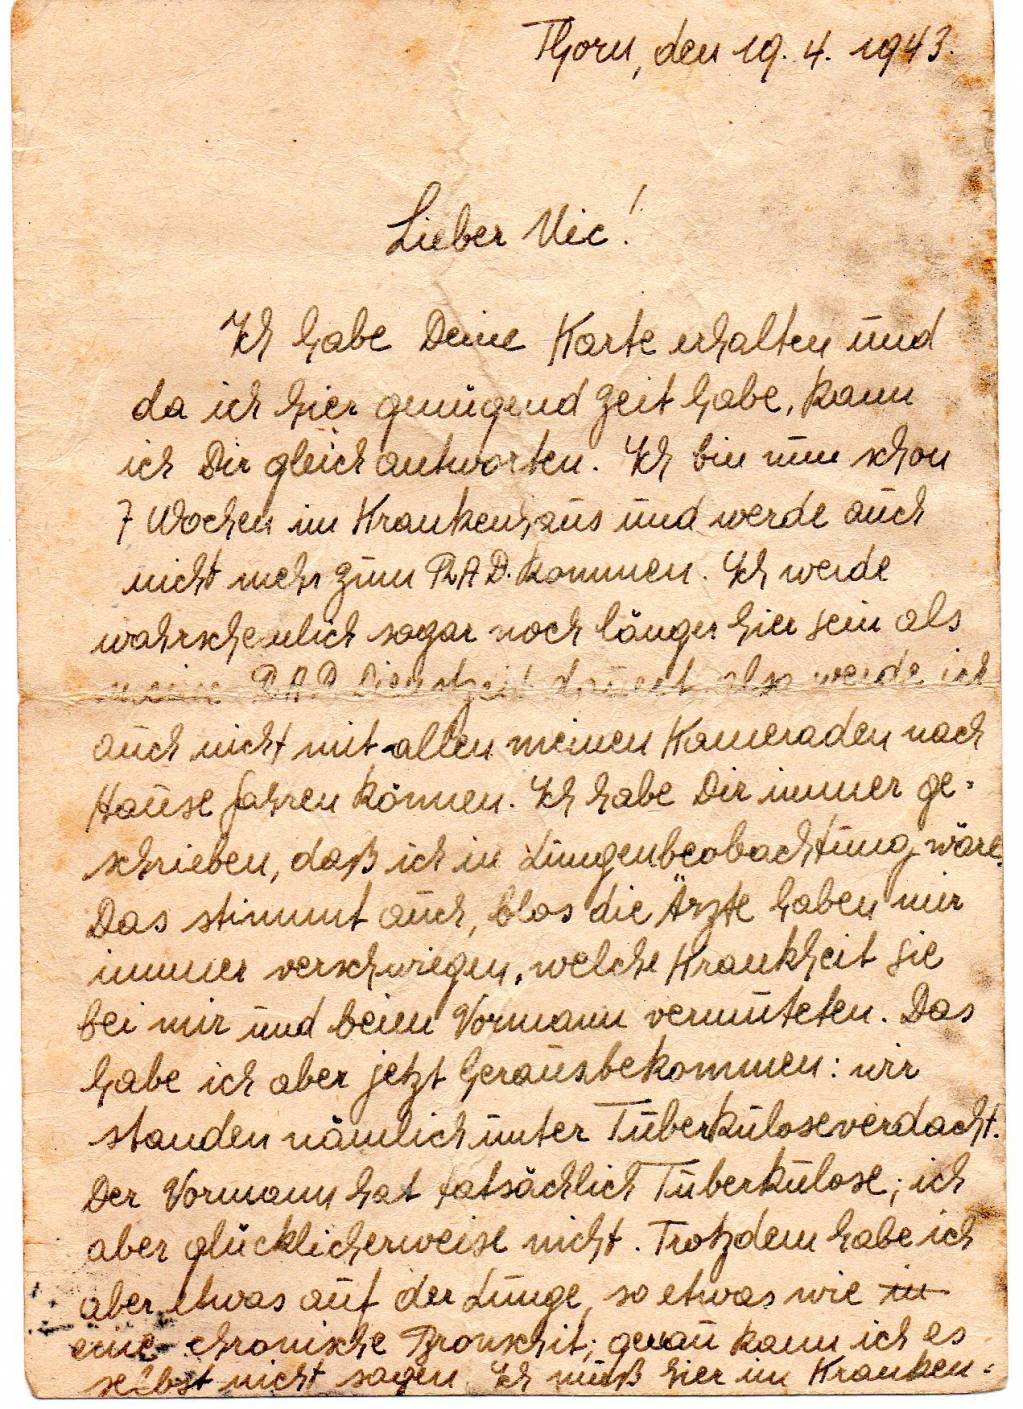 Thorn, den 19. 4. 1943.
Lieber Vic!
Ich habe Deine Karte erhalten und
da ich hier genügend Zeit habe, kann
ich Dir gleich antworten. Ich bin nun schon
7 Wochen im Krankenhaus und werde auch
nicht mehr zum R.A.D. kommen. Ich werde
wahrscheinlich sogar noch länger hier sein als
meine R.A.D. Dienstzeit dauert also werde ich
auch nicht mit allen meinen Kameraden nach
Hause fahren können. Ich habe Dir immer ge-
schrieben, daß ich in Lungenbeobachtung wäre.
Das stimmt auch, blos die Ärzte haben mir
immer verschwiegen, welche Krankheit sie
bei mir und beim Vormann vermuteten. Das
habe ich aber jetzt herausbekommen: wir
standen nämlich unter Tuberkuloseverdacht.
Der Vormann hat tatsächlich Tuberkulose; ich
aber glücklicherweise nicht. Trotzdem habe ich
aber etwas auf der Lunge, so etwas wie in
eine chronische Bronschit; genau kann ich es
selbst nicht sagen. Ich muß hier im Kranken-